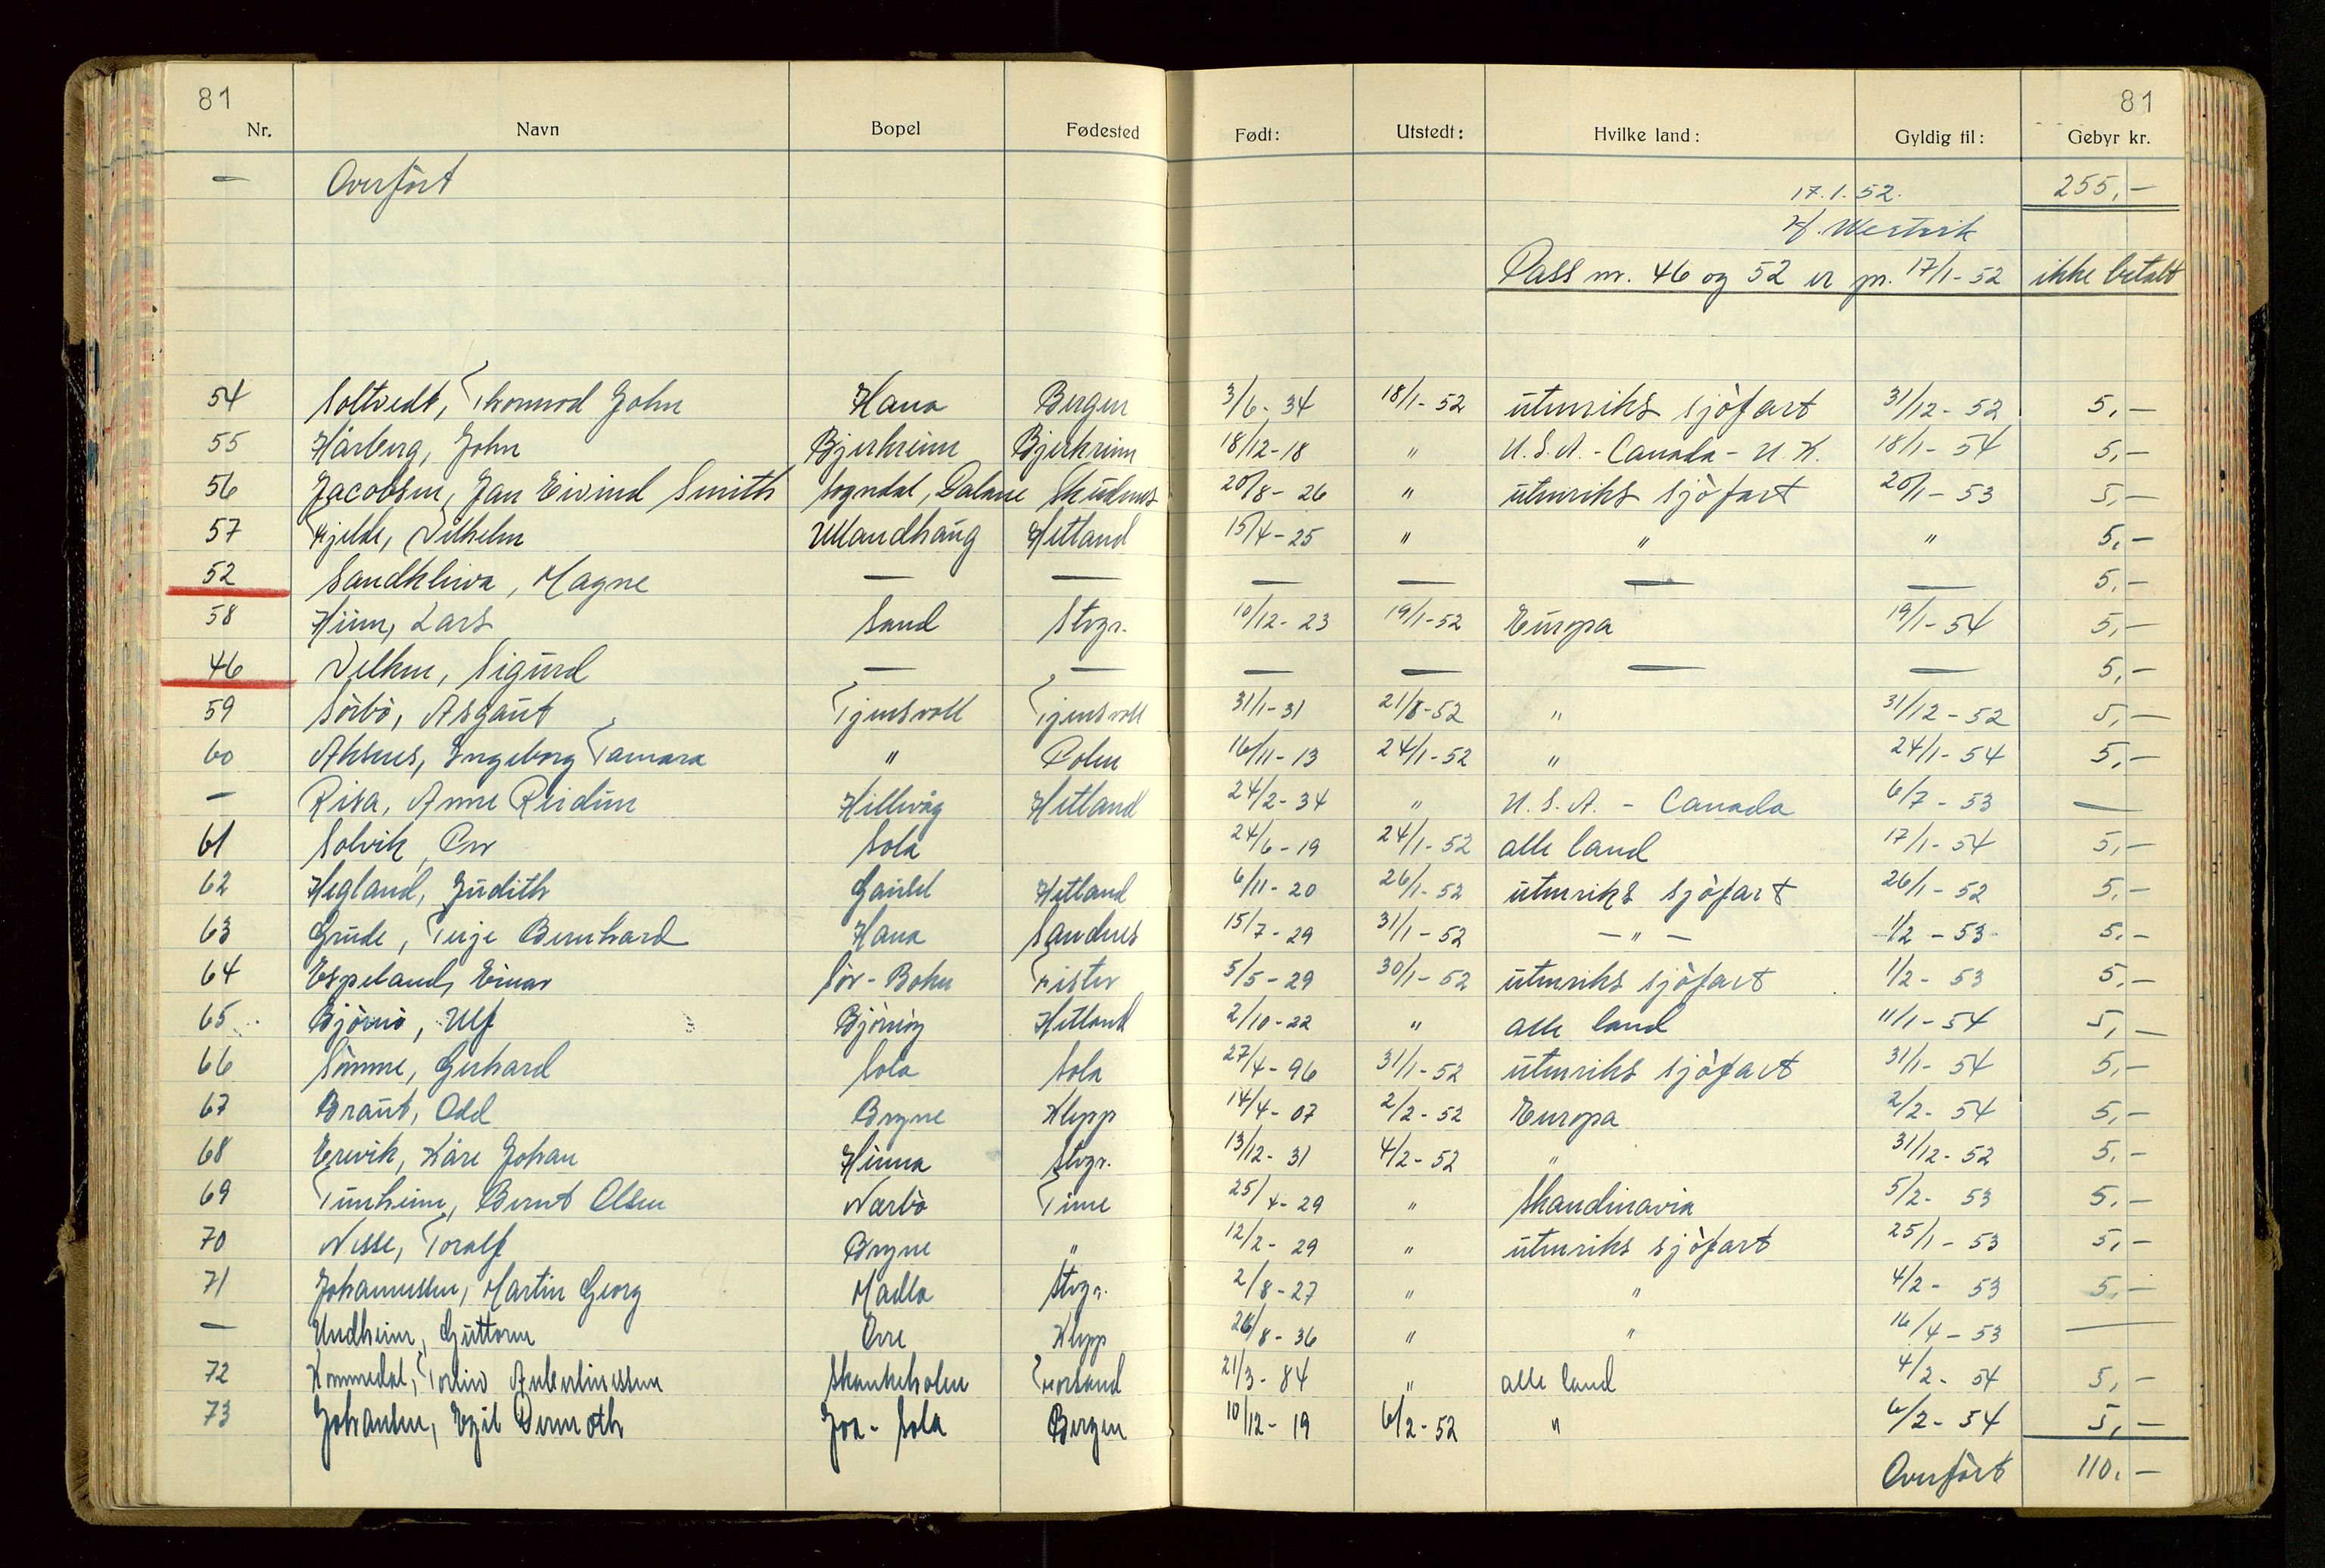 81 81
Nr. Navn Bopel Fødested Født: Utstedt: Hvilke land: Gyldig til: Gebyr kr.
— Overført 17.1.52. 255,—
Pass nr. 46 og 52 er pr. 17/1-52 ikke betalt
54 Soltvedt, Thormod John Hana Bergen 3/6-34 18/1-52 utenriks sjòfart 31/12-52 5,—
55 Hårberg, John Bjerkreim Bjerkreim 18/12-18 " U.S.A. - Canada - U.K. 18/1-54 5,—
56 Jacobsen, Jan Eivind Smith Sogndal, Dalane Skudnes 20/8-26 " utenriks sjòfart 20/1-53 5,—
57 Kjelde, Vilhelm Ullandhaug Hetland 15/4-25 " " " 5,—
52 Sandkleiva, Magne — — — — — — 5,—
58 Hiim, Lars Sand Stvgr. 10/12-23 19/1-52 Europa 19/1-54 5,—
46 Velken, Sigurd — — — — — — 5,—
59 Sòrbò, Asgaut Tjensvoll Tjensvoll 31/1-31 21/8-52 " 31/12-52 5,—
60 Aksnes, Ingeborg Tamara " Polen 16/11-13 24/1-52 " 24/1-54 5,—
— Risa, Anne Reidun Hillevåg Hetland 24/2-34 " U.S.A. - Canada 6/7-53 —
61 Solvik, Per Sola 24/6-19 24/1-52 alle land 17/1-54 5,—
62 Hegland, Judith Gausel Hetland 6/11-20 26/1-52 utenriks sjòfart 26/1-52 5,—
63 Grude, Terje Bernhard Hana Sandnes 15/7-29 31/1-52 — " — 1/2-53 5,—
64 Espeland, Einar Sòr-Bokn Fister 5/5-29 30/1-52 utenriks sjòfart 1/2-53 5,—
65 Bjòrnò, Ulf Bjòrnòy Hetland 2/10-22 " alle land 11/1-54 5,—
66 Sòmme, Gerhard Sola Sola 27/4-96 31/1-52 utenriks sjòfart 31/1-54 5,—
67 Braut, Odd Bryne Klepp 14/4-07 2/2-52 Europa 2/2-54 5,—
68 Erevik, Kåre Johan Hinna Stvgr. 13/12-31 4/2-52 " 31/12-52 5,—
69 Tunheim, Bernt Olsen Nærbò Time 25/4-29 " Skandinavia 5/2-53 5,—
70 Nesse, Toralf Bryne " 12/2-29 " utenriks sjòfart 25/1-53 5,—
71 Johannessen, Martin Georg Madla Stvgr. 2/8-27 " " 4/2-53 5,—
— Undheim, Guttorm Orre Klepp 26/8-36 " " 16/4-53 —
72 Kommedal, Torleiv Skankeholen Forsand 21/3-84 " alle land 4/2-54 5,—
73 Johansen, Egil Joa-Sola Bergen 10/12-19 6/2-52 " 6/2-54 5,—
Overfòrt 110,—